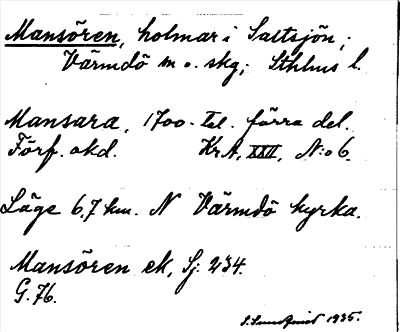 Mansören, holmar i Saltsjön;
Värmdö m o. skg; Sthlms l.
Mansara, 1700-tal. förra del.
Förf. okd. KrA, XXII, N:o 6.
Läge 6,7 km. N Värmdö kyrka.
Mansören ek, Sj: 234.
G. 76.
S. Sundquist 1935.